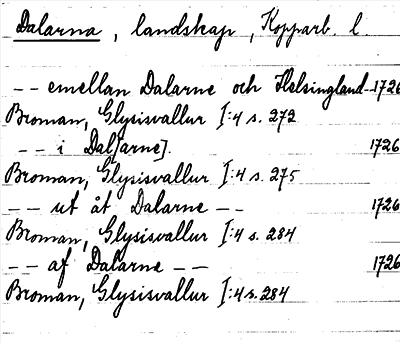 Dalarna, landskap, Kopparb. l.
-- emellan Dalarne och Helsingland 1726
Broman, Glysisvallur I:4 s. 272
-- i Dal[arne]. 1726
Broman, Glysisvallur I:4 s. 275
-- ut åt Dalarne -- 1726
Broman, Glysisvallur I:4 s. 284
-- af Dalarne -- 1726
Broman, Glysisvallur I:4 s. 284